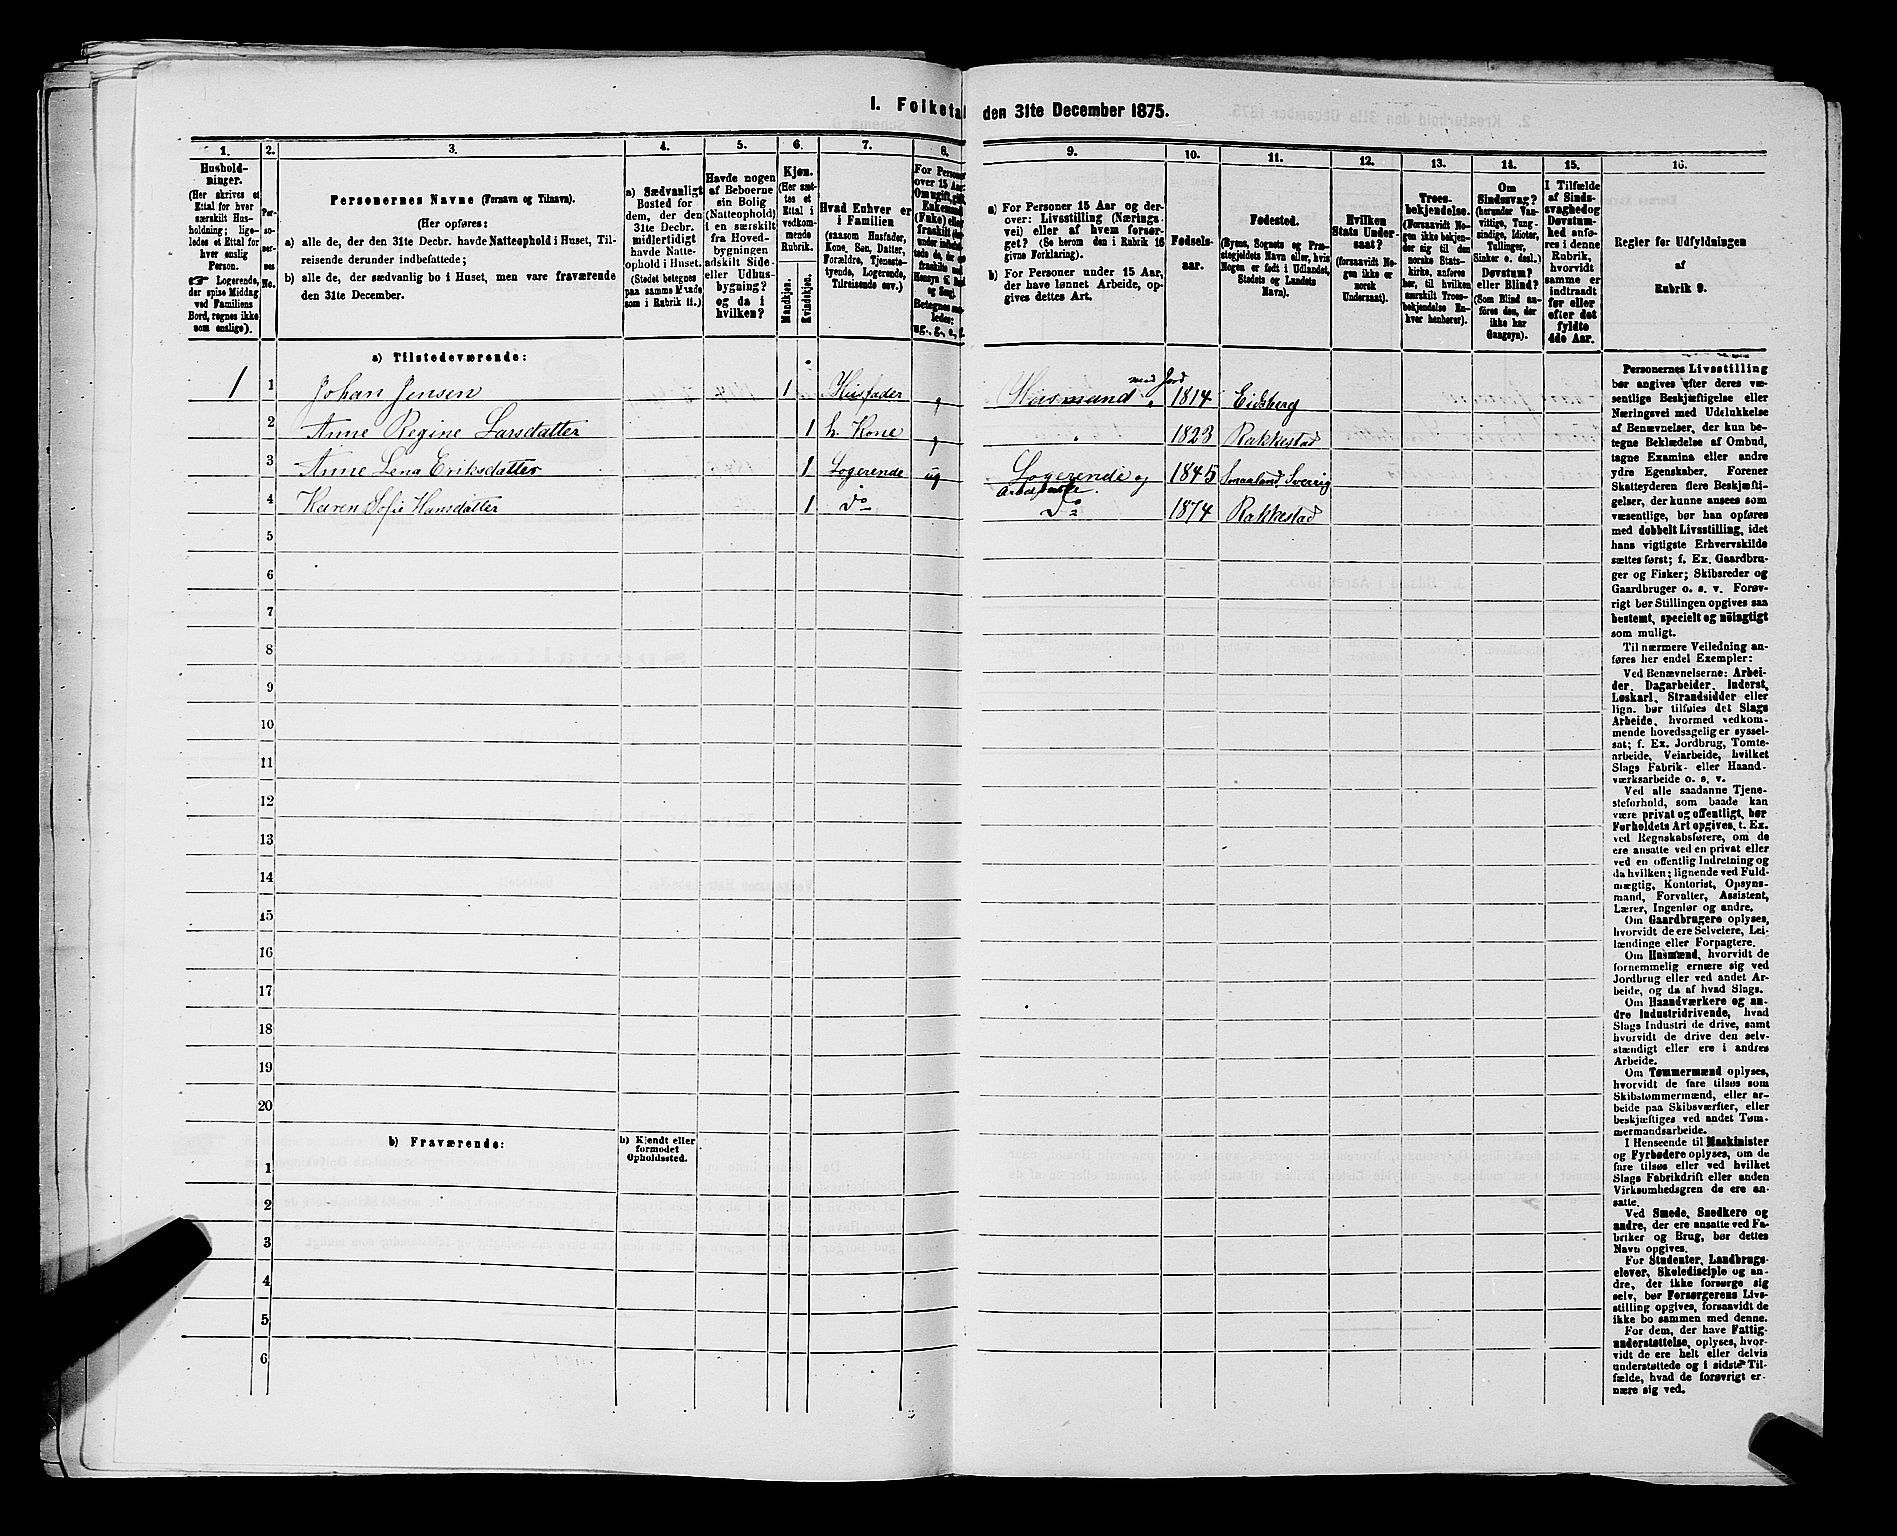 1. Folketal den 31te December 1875.
1. 2. 3. 4. 5. 6. 7. 8. 9. 10. 11. 12. 13. 14. 15. 16.
Husholdninger.
(Her skrives et
Ettal for hver
særskilt Hus-
holdning; lige-
ledes et Ettal for
hver enslig
Person.
☞ Logerende,
der spise Middag
ved Familiens
Bord, regnes ikke
som enslige).
Personernes Navne (Fornavn og Tilnavn).
(Her opføres:
a) alle de, der den 31te Decbr. havde Natteophold i Huset, Til-
reisende derunder indbefattede;
b) alle de, der sædvanlig bo i Huset, men vare fraværende
den 31te December.
a) Sædvanligt
Bosted for
dem, der den
31te Decbr.
midlertidigt
havde Natte-
ophold i Huset.
Havde nogen
af Beboerne
sin Bolig
(Natteophold)
i en særskilt
fra Hoved-
bygningen
adskilt Side-
eller Udhus-
bygning?
og da i
hvilken?
Kjøn.
(Her sæt-
tes et
Ettal i
vedkom-
mende
Rubrik.
Mandkjøn.
Kvindekjøn.
Hvad Enhver er
i Familien
(saasom Husfader,
Kone, Søn, Datter,
Forældre, Tjeneste-
tyende, Logerende,
Tilreisende osv.)
a) For Personer 15 Aar og der-
over: Livsstilling (Nærings-
vei) eller af hvem forsør-
get? (Se herom den i Rubrik 16
givne Forklaring).
b) For Personer under 15 Aar,
der have lønnet Arbeide, op-
gives dettes Art.
Fødsels-
aar.
Fødested.
(Byens, Sognets og Præ-
stegjeldets Navn eller, hvis
Nogen er født i Udlandet,
Stedets og Landets
Navn).
Hvilken
Stats Under-
saat?
(forsaavidt No-
gen ikke er
norsk
Undersaat).
Troes-
bekjendelse.
(Forsaavidt No-
gen ikke bekjen-
der sig til den
norske Stats-
kirke, anføres
her, til hvilken
særskilt Troes-
bekjendelse En-
hver henhører).
Om
Sindssvag?
(herunder Van-
vittige, Tung-
sindige, Idioter,
Tullinger,
Sinker o. desl.)
Døvstum?
eller Blind?
(Som Blind an-
føres den, der
ikke har
Gangsyn).
I Tilfælde
af Sinds-
svaghed og
Døvstum-
hed anfø-
res i denne
Rubrik,
hvorvidt
samme er
indtraadt
før eller
efter det
fyldte
4de Aar.
Regler for Udfyldningen
af
Rubrik 9.
a) Tilstedeværende:
1 1 Johan Jensen 1 Husfader g Husmand med Jord 1814 Eidsberg
2 Anne Regine Larsdatter 1 h. Kone g 1823 Rakkestad
3 Anne Lena Eriksdatter 1 Logerende ug Logerende og 1845 Smaaland Sverig
4 Karen Sofie Hansdatter 1 do do 1874 Rakkestad
5
6
7
8
9
10
11
12
13
14
15
16
17
18
19
20
b) Fraværende:
b) Kjendt eller
formodet
Opholdssted.
1
2
3
4
5
6
Personernes Livsstilling
bør angives efter deres væ-
sentlige Beskjæftigelse eller
Næringsvei med Udelukkelse
af Benævnelser, der kun be-
tegne Beklædelse af Ombud,
tagne Examina eller andre
ydre Egenskaber. Forener
Skatteyderen flere Beskjæfti-
gelser, der kunne ansees som
væsentlige, bør han opføres
med dobbelt Livsstilling, idet
hans vigtigste Erhvervskilde
sættes først; f. Ex. Gaardbru-
ger og Fisker; Skibsreder og
Gaardbruger o. s. v. Forøv-
rigt bør Stillingen opgives saa
bestemt, specielt og nøiagtigt
som muligt.
Til nærmere Veiledning an-
føres her endel Exempler:
Ved Benævnelserne: Arbei-
der, Dagarbeider, Inderst,
Løskarl, Strandsidder eller
lign. bør tilføies det Slags
Arbeide, hvormed vedkom-
mende hovedsagelig er syssel-
sat; f. Ex. Jordbrug, Tomte-
arbeide, Veiarbeide, hvilket
Slags Fabrik- eller Haand-
værksarbeide o. s. v.
Ved alle saadanne Tjene-
steforhold, som baade kan
være privat og offentligt, bør
Forholdets Art opgives, t. Ex.
ved Regnskabsførere, om de
ere ansatte ved en privat eller
ved en offentlig Indretning og
da hvilken; lignende ved Fuld-
mægtig, Kontorist, Opsyns-
mand, Forvalter, Assistent,
Lærer, Ingeniør og andre.
Om Gaardbrugere oplyses,
hvorvidt de ere Selveiere, Lei-
lændinge eller Forpagtere.
Om Husmænd, hvorvidt de
fornemmelig ernære sig ved
Jordbrug eller ved andet Ar-
beide, og da af hvad Slags.
Om Haandværkere og an-
dre Industridrivende, hvad
Slags Industri de drive, samt
hvorvidt de drive den selv-
stændigt eller ere i andres
Arbeide.
Om Tømmermænd oplyses,
hvorvidt de fare tilsøs som
Skibstømmermænd, eller ar-
beide paa Skibsværfter, eller
beskjæftiges ved andet Tøm-
mermandsarbeide.
I Henseende til Maskinister
og Fyrbødere oplyses, om de
fare tilsøs eller ved hvilket
Slags Fabrikdrift eller anden
Virksomhedsgren de ere an-
satte.
Ved Smede, Snedkere og
andre, der ere ansatte ved Fa-
briker og Brug, bør dettes
Navn opgives.
For Studenter, Landbrugs-
elever, Skoledisciple og an-
dre, der ikke forsørge sig
selv, bør Forsørgerens Livs-
stilling opgives, forsaavidt de
ikke bo sammen med denne.
For dem, der have Fattig-
understøttelse, oplyses, hvor-
vidt de ere helt eller delvis
understøttede og i sidste Til-
fælde, hvad de forøvrigt er-
nære sig ved.